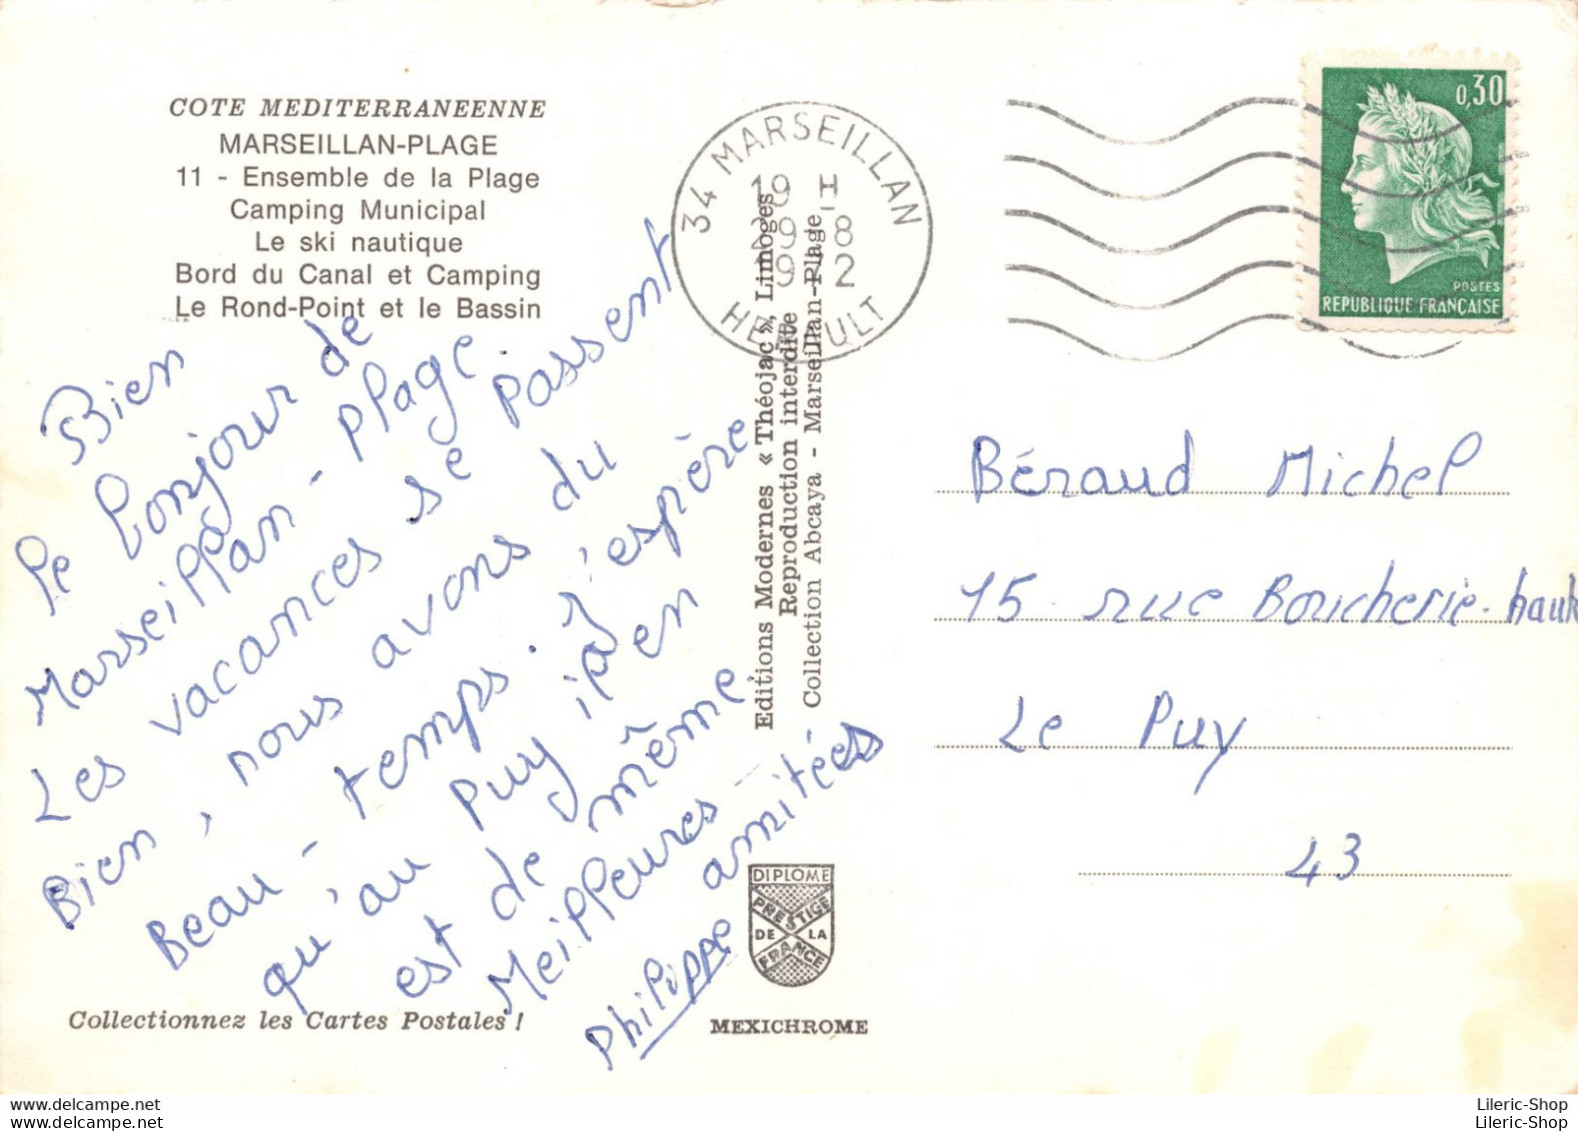 COTE MEDITERRANEENNE
MARSEILLAN-PLAGE
11 - Ensemble de la Plage
Camping Municipal
Le ski nautique
Bord du Canal et Camping
Le Rond-Point et le Bassin
Bien
le bonjour de
Marseillan - plage
Les vacances se passent
Bien, nous avons du
Beau - temps. J'espère
qu'au Puy il en
est de même
Meilleures
amitiées
Philippe
Collectionnez les Cartes Postales !
Editions Modernes « Théojac », Limoges
Reproduction interdite
Collection Abcaya - Marseillan-Plage
DIPLOME
PRESTIGE
DE LA
FRANCE
MEXICHROME
34 MARSEILLAN
19 H
29 - 8
1972
HERAULT
0,30
POSTES
REPUBLIQUE FRANÇAISE
Béraud Michel
15 rue Boucherie-haute
Le Puy
43
delcampe.net
Lileric-Shop
Lileric-Shop